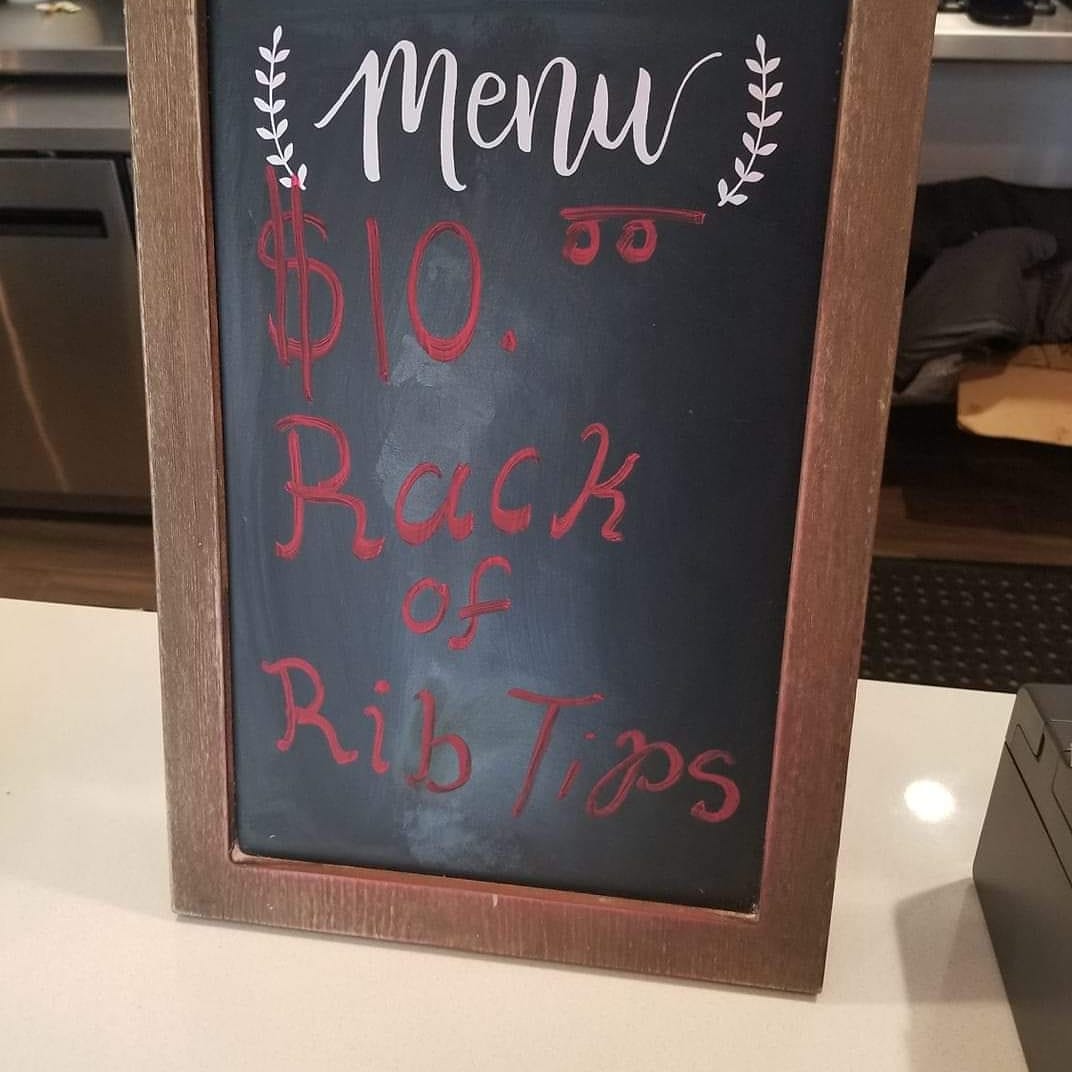 Menu
$10.00
Rack
of
Rib Tips